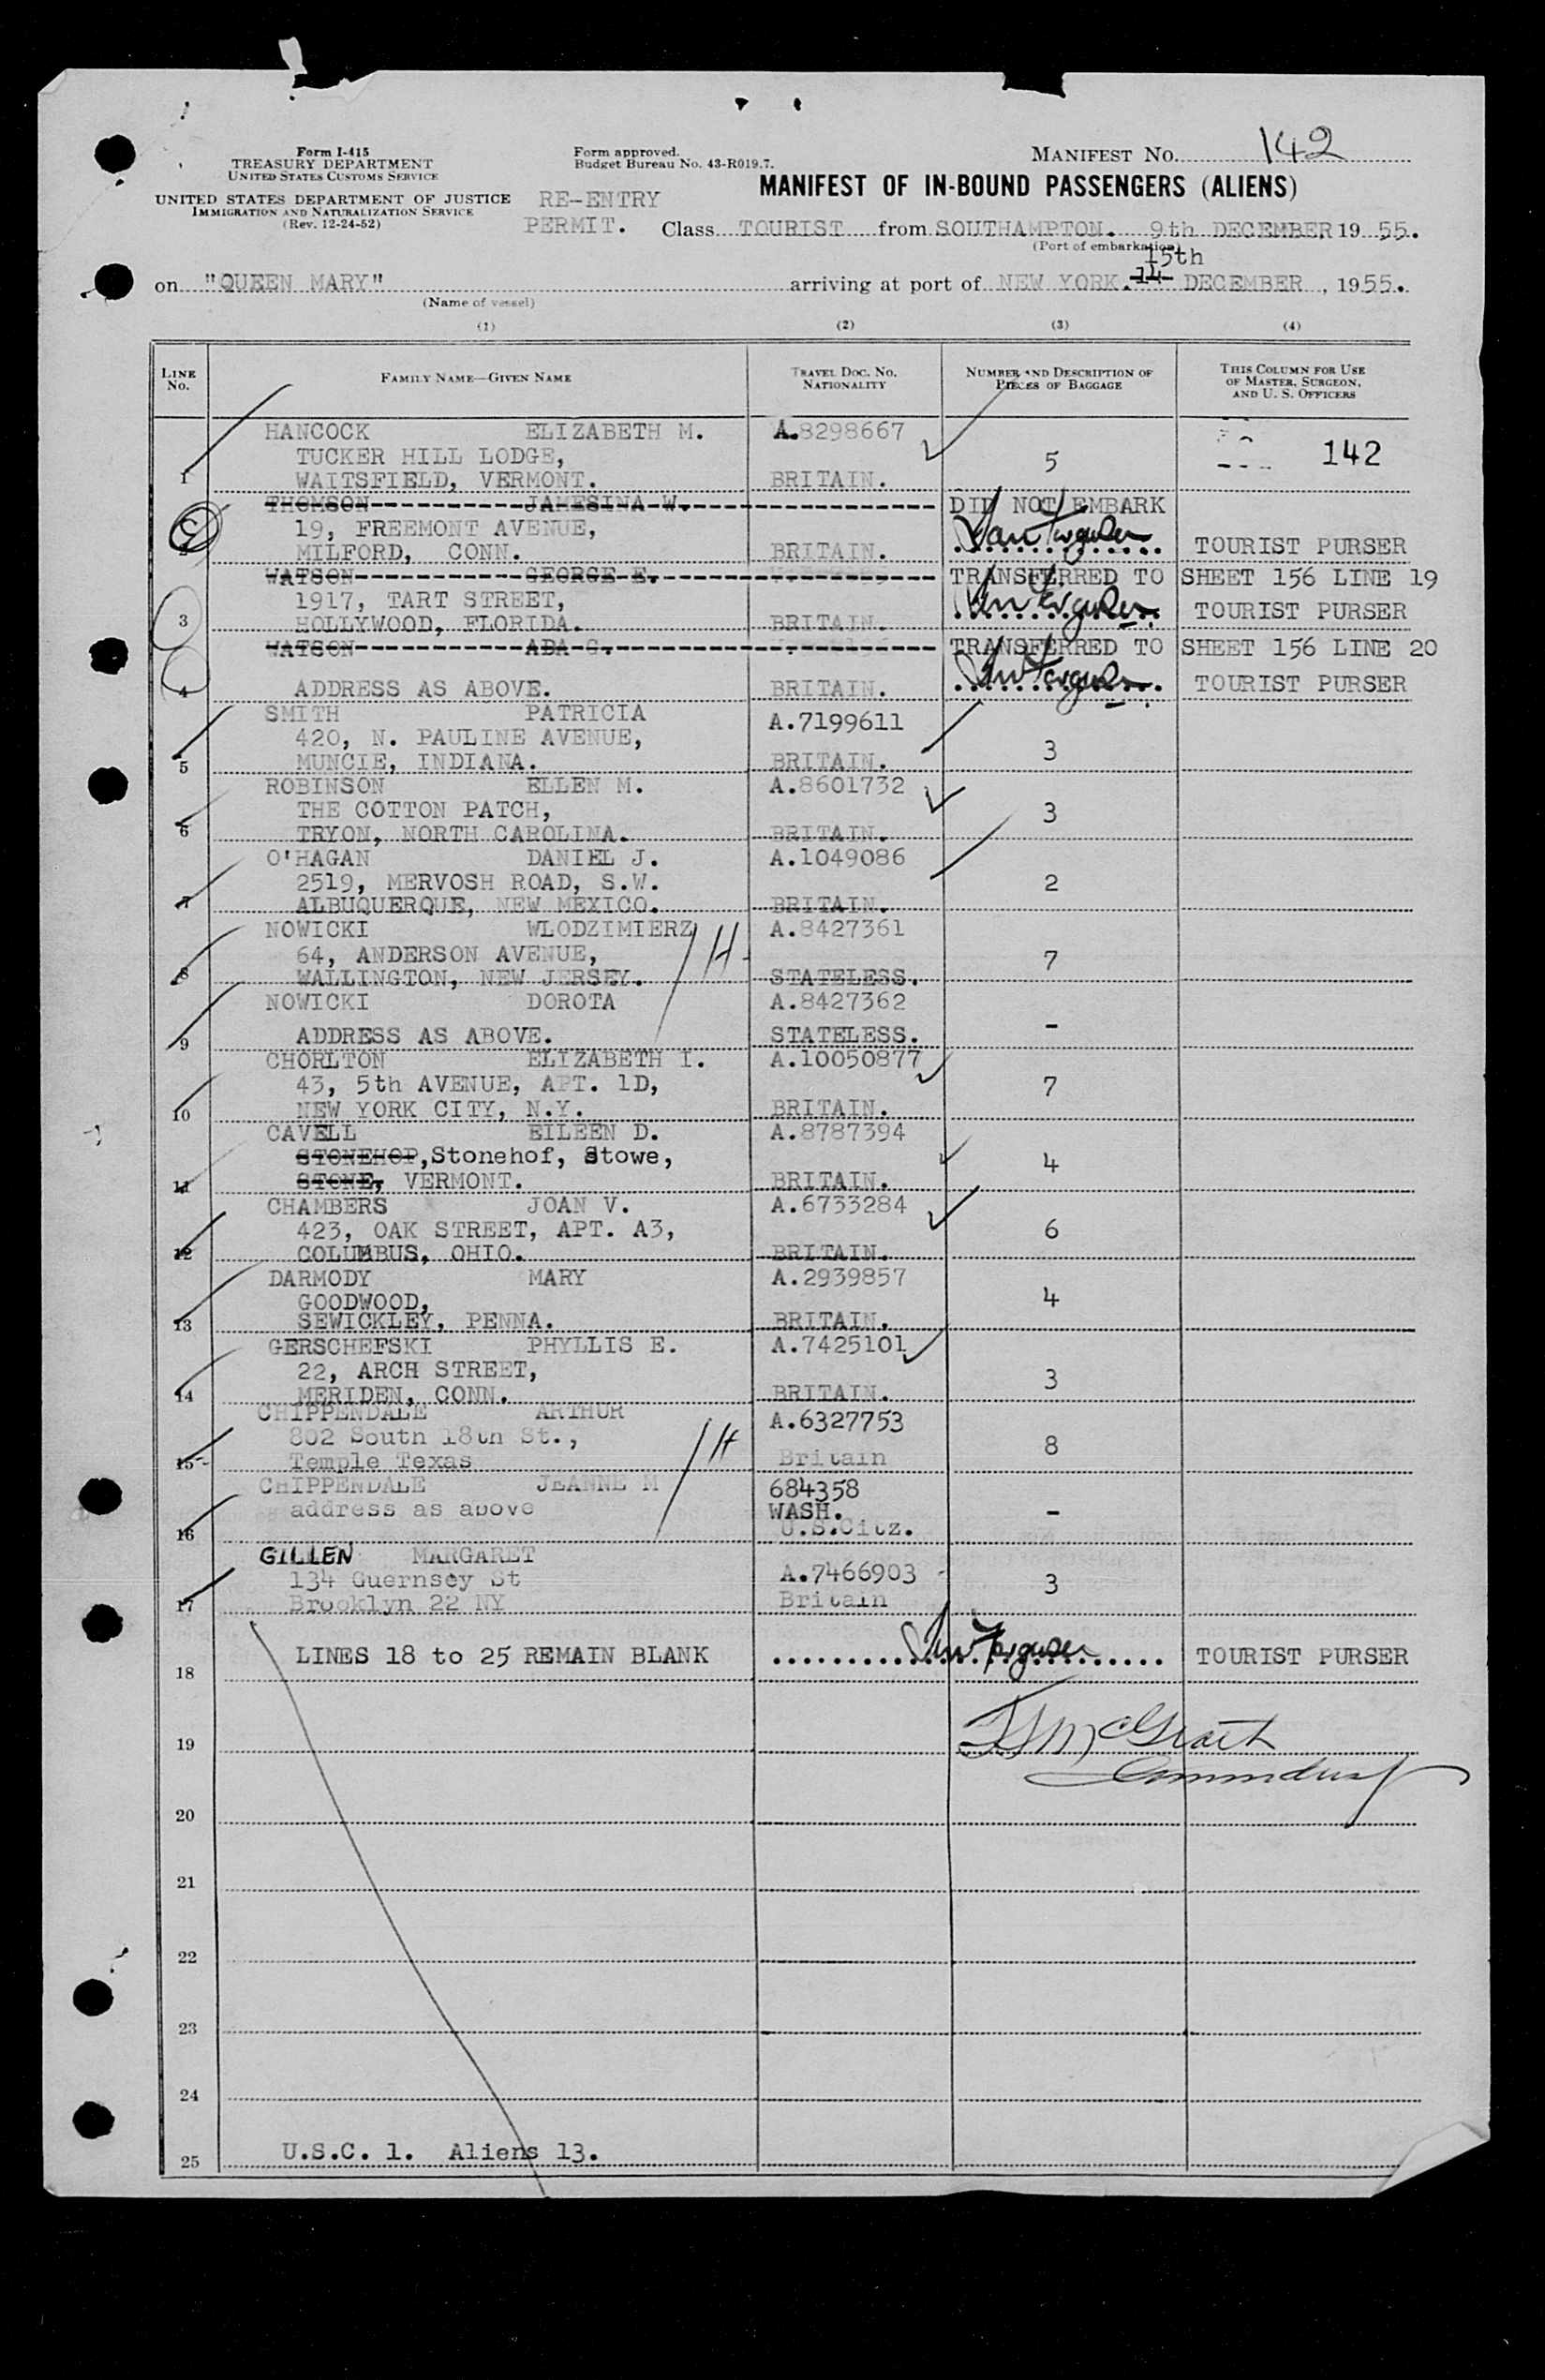 Form I-415
TREASURY DEPARTMENT
UNITED STATES CUSTOMS SERVICE
UNITED STATES DEPARTMENT OF JUSTICE
IMMIGRATION AND NATURALIZATION SERVICE
(Rev. 12-24-52)
Form approved.
Budget Bureau No. 43-R019.7.
MANIFEST NO. 142
MANIFEST OF IN-BOUND PASSENGERS (ALIENS)
RE-ENTRY
PERMIT. Class TOURIST from SOUTHAMPTON. 9th DECEMBER 19 55.
(Port of embarkation)
15th
on "QUEEN MARY" arriving at port of NEW YORK. 14 DECEMBER, 1955.
(Name of vessel)
(1) (2) (3) (4)
LINE No. FAMILY NAME—GIVEN NAME TRAVEL DOC. NO. NATIONALITY NUMBER AND DESCRIPTION OF PIECES OF BAGGAGE THIS COLUMN FOR USE OF MASTER, SURGEON, AND U. S. OFFICERS
HANCOCK ELIZABETH M. A.8298667
TUCKER HILL LODGE, 5 142
1 WAITSFIELD, VERMONT. BRITAIN.
THOMSON JAMESINA W. DID NOT EMBARK
19, FREEMONT AVENUE,
2 MILFORD, CONN. BRITAIN. TOURIST PURSER
WATSON GEORGE E. TRANSFERRED TO SHEET 156 LINE 19
1917, TART STREET,
3 HOLLYWOOD, FLORIDA. BRITAIN. TOURIST PURSER
WATSON ADA G. TRANSFERRED TO SHEET 156 LINE 20
4 ADDRESS AS ABOVE. BRITAIN. TOURIST PURSER
SMITH PATRICIA A.7199611
420, N. PAULINE AVENUE, 3
5 MUNCIE, INDIANA. BRITAIN.
ROBINSON ELLEN M. A.8601732
THE COTTON PATCH, 3
6 TRYON, NORTH CAROLINA. BRITAIN.
O'HAGAN DANIEL J. A.1049086
2519, MERVOSH ROAD, S.W. 2
7 ALBUQUERQUE, NEW MEXICO. BRITAIN.
NOWICKI WLODZIMIERZ A.8427361
64, ANDERSON AVENUE, H 7
8 WALLINGTON, NEW JERSEY. STATELESS.
NOWICKI DOROTA A.8427362
9 ADDRESS AS ABOVE. STATELESS. -
CHORLTON ELIZABETH I. A.10050877
43, 5th AVENUE, APT. 1D, 7
10 NEW YORK CITY, N.Y. BRITAIN.
CAVELL EILEEN D. A.8787394
STONEHOP, Stonehof, Stowe, 4
11 STONE, VERMONT. BRITAIN.
CHAMBERS JOAN V. A.6733284
423, OAK STREET, APT. A3, 6
12 COLUMBUS, OHIO. BRITAIN.
DARMODY MARY A.2939857
GOODWOOD, 4
13 SEWICKLEY, PENNA. BRITAIN.
GERSCHEFSKI PHYLLIS E. A.7425101
22, ARCH STREET, 3
14 MERIDEN, CONN. BRITAIN.
CHIPPENDALE ARTHUR A.6327753
802 South 18th St., H 8
15 Temple Texas Britain
CHIPPENDALE JEANNE M 684358
address as above WASH. -
16 U.S.Citz.
GILLEN MARGARET
134 Guernsey St A.7466903 3
17 Brooklyn 22 NY Britain
18 LINES 18 to 25 REMAIN BLANK TOURIST PURSER
19 McGrath
20
21
22
23
24
25 U.S.C. 1. Aliens 13.